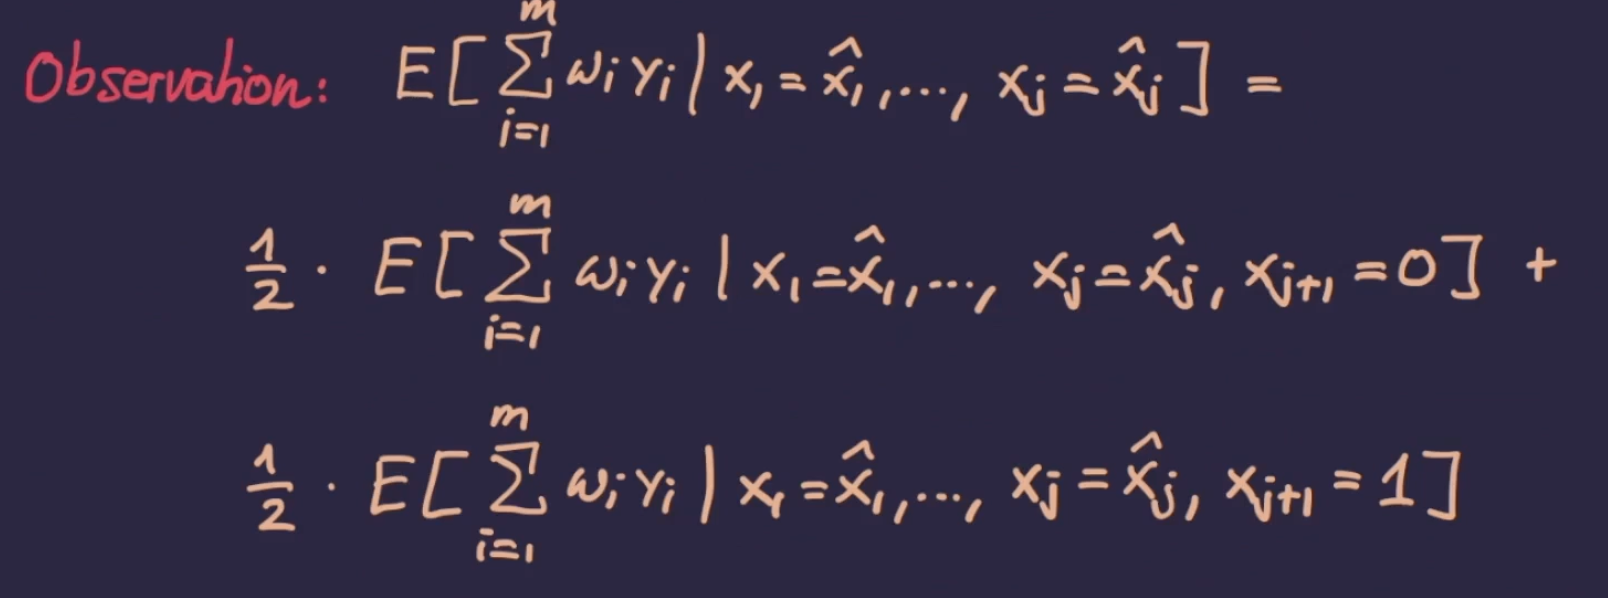 Observation: E[∑_{i=1}^{m} w_i y_i | x_1 = x̂_1, ..., x_j = x̂_j] =
1/2 · E[∑_{i=1}^{m} w_i y_i | x_1 = x̂_1, ..., x_j = x̂_j, x_{j+1} = 0] +
1/2 · E[∑_{i=1}^{m} w_i y_i | x_1 = x̂_1, ..., x_j = x̂_j, x_{j+1} = 1]